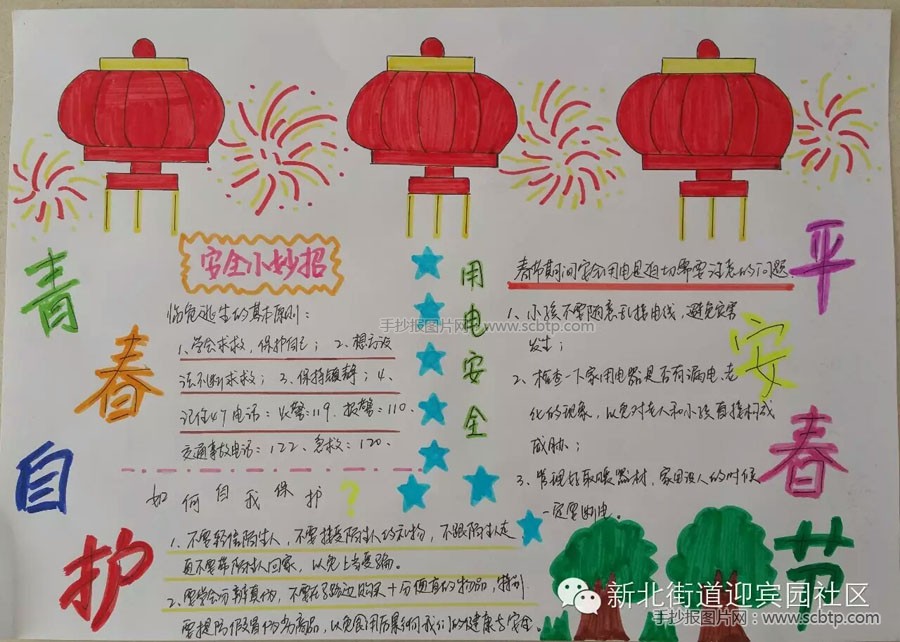 青春自护
平安春节
安全小妙招
临危逃生的基本原则：
1、学会求救，保护自己；2、想方设
法不断求救；3、保持镇静；4、
记住4个电话：火警：119、报警：110、
交通事故电话：122、急救：120、
如何自我保护？
1、不要轻信陌生人，不要接受陌生人的礼物，不跟陌生人走
更不要带陌生人回家，以免上当受骗。
2、要学会分辨真伪，不要在马路边购买十分便宜的物品，特别
要提防假冒伪劣商品，以免食用后影响我们的健康与安全。
用电安全
春节期间安全用电是迫切需要注意的问题
1、小孩不要随意乱接电线，避免灾害
发生；
2、检查一下家用电器是否有漏电、老
化的现象，以免对老人和小孩直接构成
威胁；
3、掌握好取暖器材，家里没人的时候
一定要断电。
手抄报图片网 www.scbtp.com
新北街道迎宾园社区
手抄报图片网 www.scbtp.com